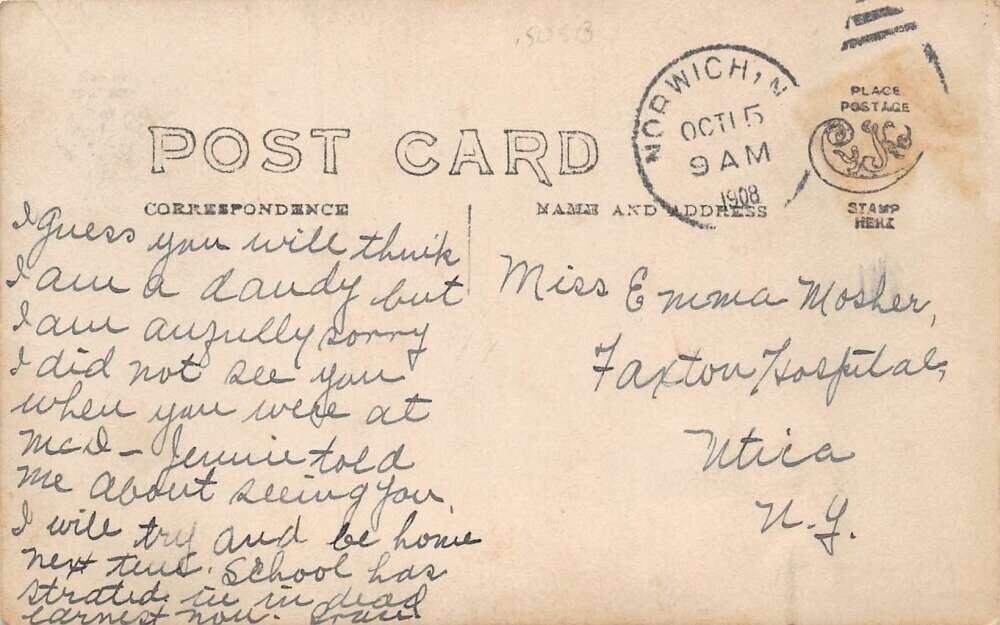 POST CARD
CORRESPONDENCE
NAME AND ADDRESS
NORWICH, N
OCT 15
9 AM
1908
PLACE
POSTAGE
STAMP
HERE
I guess you will think
I am a dandy but
I am awfully sorry
I did not see you
when you were at
McD – Jennie told
me about seeing you
I will try and be home
next time. School has
strated in in dead
earnest now. Grace
Miss Emma Mosher,
Faxton Hospital,
Utica
N.Y.